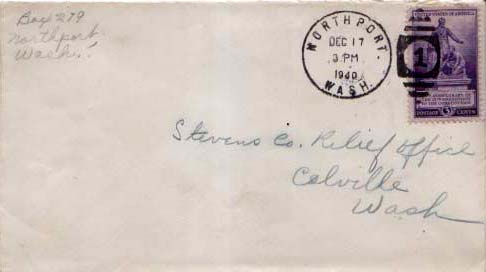 Box 279
Northport
Wash.
NORTHPORT.
DEC 17
3 PM
1940
WASH.
1
UNITED STATES OF AMERICA
TO THE CONSTITUTION
POSTAGE 3 CENTS
Stevens Co. Relief Office
Colville
Wash